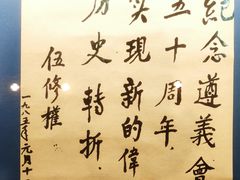 紀念遵義會
五十周年.
实現新的偉
历史轉折.
伍修權
一九八五年元月十